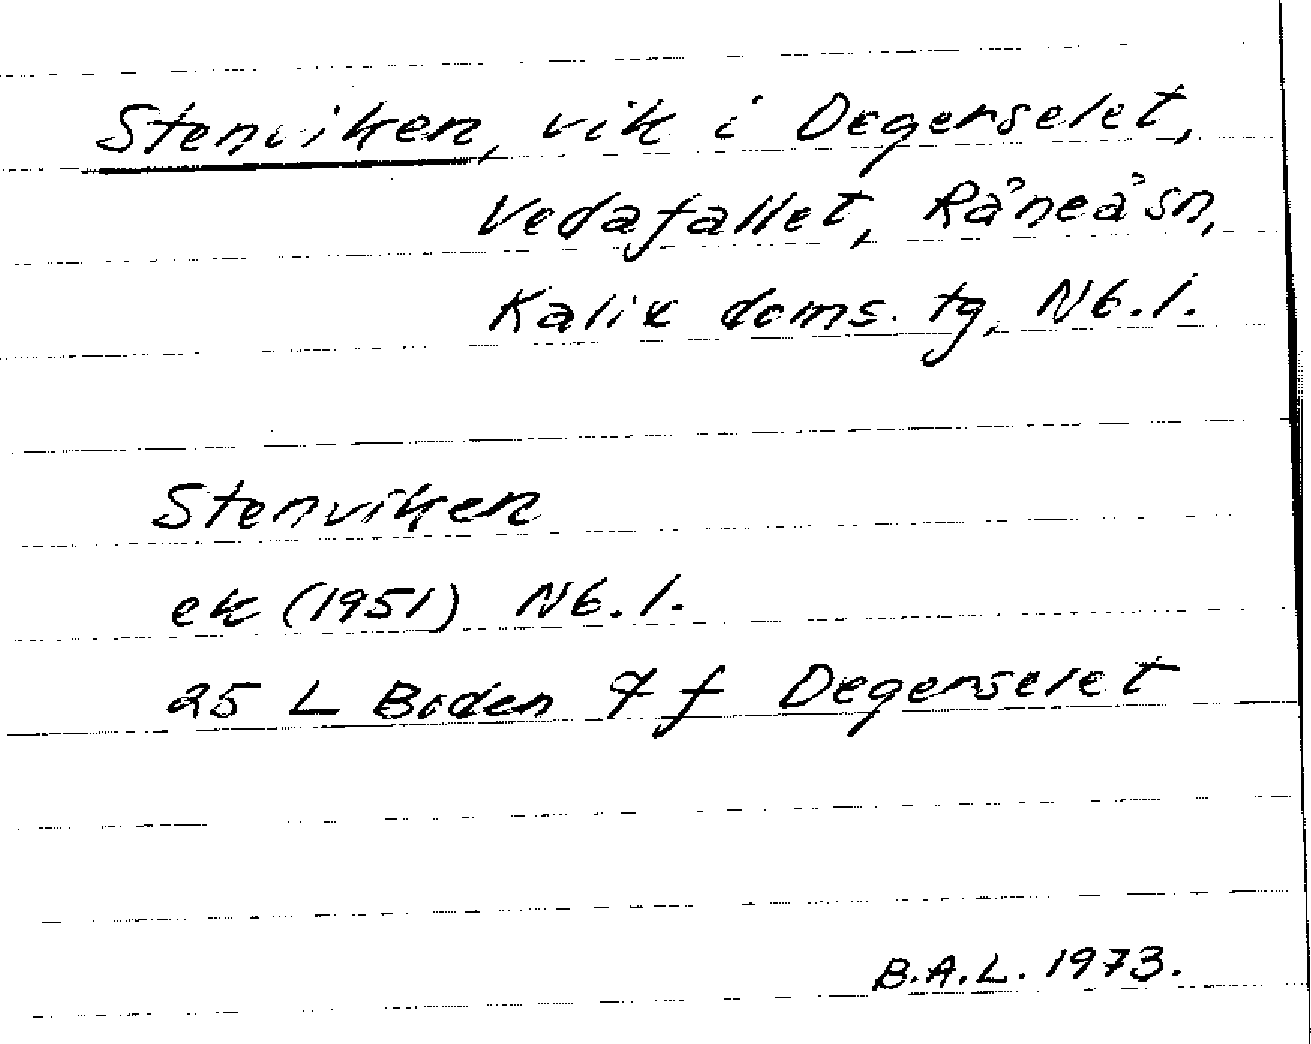 Stenviken, vik i Degerselet,
Vedafallet, Råneå sn,
Kalix doms. tg, Nb. l.
Stenviken
ek (1951) Nb. l.
25 L Boden 9 f Degerselet
B.A.L. 1973.